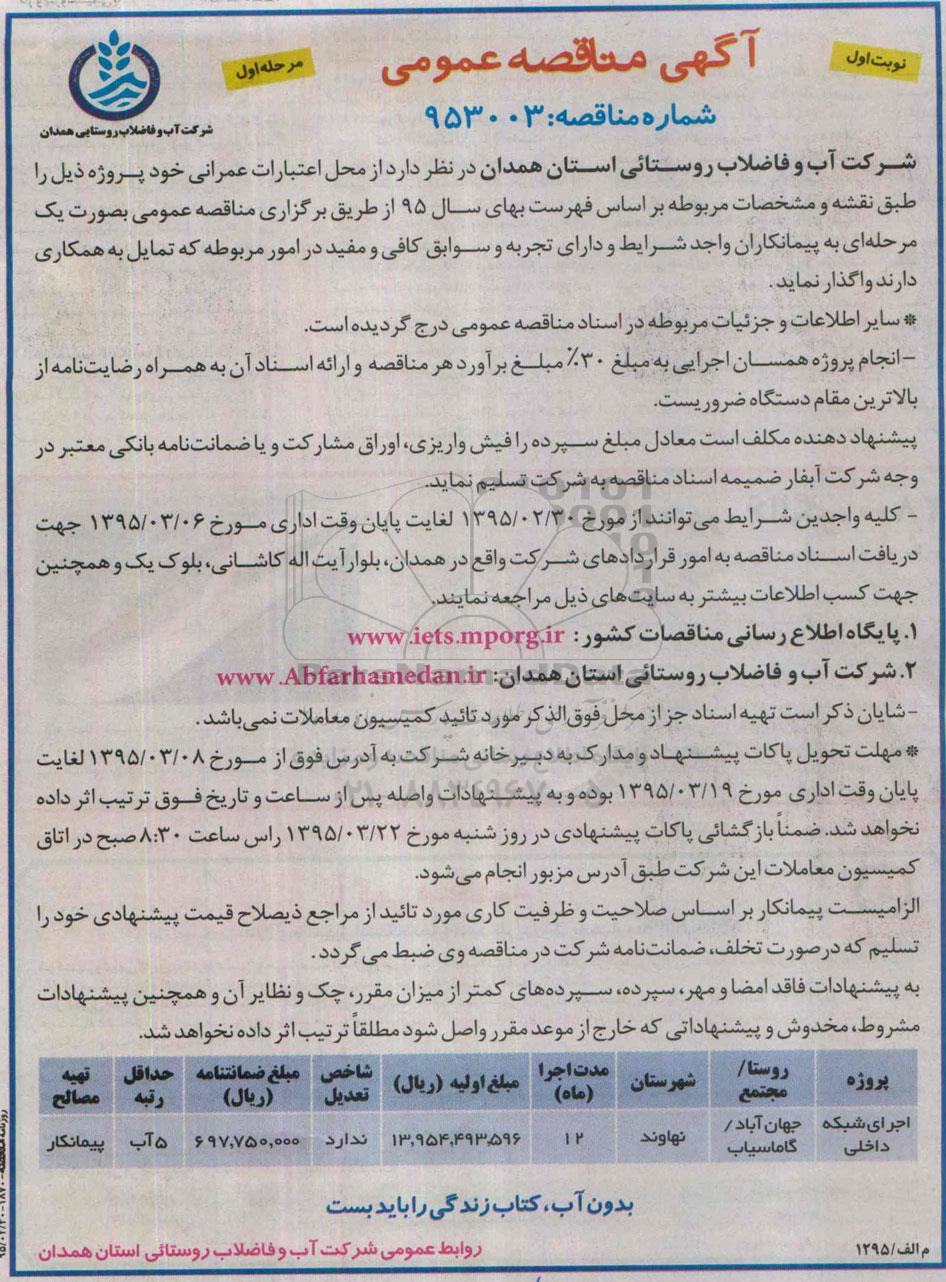 نوبت اول
آگهی مناقصه عمومی
مرحله اول
شماره مناقصه: ۹۵۳۰۰۳
شرکت آب و فاضلاب روستایی همدان
شرکت آب و فاضلاب روستائی استان همدان در نظر دارد از محل اعتبارات عمرانی خود پروژه ذیل را
طبق نقشه و مشخصات مربوطه بر اساس فهرست بهای سال ۹۵ از طریق برگزاری مناقصه عمومی بصورت یک
مرحله‌ای به پیمانکاران واجد شرایط و دارای تجربه و سوابق کافی و مفید در امور مربوطه که تمایل به همکاری
دارند واگذار نماید.
* سایر اطلاعات و جزئیات مربوطه در اسناد مناقصه عمومی درج گردیده است.
-انجام پروژه همسان اجرایی به مبلغ ۳۰٪ مبلغ برآورد هر مناقصه و ارائه اسناد آن به همراه رضایت‌نامه از
بالاترین مقام دستگاه ضروریست.
پیشنهاد دهنده مکلف است معادل مبلغ سپرده را فیش واریزی، اوراق مشارکت و یا ضمانت‌نامه بانکی معتبر در
وجه شرکت آبفار ضمیمه اسناد مناقصه به شرکت تسلیم نماید.
- کلیه واجدین شرایط می‌توانند از مورخ ۱۳۹۵/۰۲/۳۰ لغایت پایان وقت اداری مورخ ۱۳۹۵/۰۳/۰۶ جهت
دریافت اسناد مناقصه به امور قراردادهای شرکت واقع در همدان، بلوار آیت اله کاشانی، بلوک یک و همچنین
جهت کسب اطلاعات بیشتر به سایت‌های ذیل مراجعه نمایند.
۱. پایگاه اطلاع رسانی مناقصات کشور: www.iets.mporg.ir
۲. شرکت آب و فاضلاب روستائی استان همدان: www.Abfarhamedan.ir
-شایان ذکر است تهیه اسناد جز از محل فوق‌الذکر مورد تائید کمیسیون معاملات نمی‌باشد.
* مهلت تحویل پاکات پیشنهاد و مدارک به دبیرخانه شرکت به آدرس فوق از مورخ ۱۳۹۵/۰۳/۰۸ لغایت
پایان وقت اداری مورخ ۱۳۹۵/۰۳/۱۹ بوده و به پیشنهادات واصله پس از ساعت و تاریخ فوق ترتیب اثر داده
نخواهد شد. ضمناً بازگشائی پاکات پیشنهادی در روز شنبه مورخ ۱۳۹۵/۰۳/۲۲ راس ساعت ۸:۳۰ صبح در اتاق
کمیسیون معاملات این شرکت طبق آدرس مزبور انجام می‌شود.
الزامیست پیمانکار بر اساس صلاحیت و ظرفیت کاری مورد تائید از مراجع ذیصلاح قیمت پیشنهادی خود را
تسلیم که در صورت تخلف، ضمانت‌نامه شرکت در مناقصه وی ضبط می‌گردد.
به پیشنهادات فاقد امضا و مهر، سپرده، سپرده‌های کمتر از میزان مقرر، چک و نظایر آن و همچنین پیشنهادات
مشروط، مخدوش و پیشنهاداتی که خارج از موعد مقرر واصل شود مطلقاً ترتیب اثر داده نخواهد شد.
پروژه روستا/مجتمع شهرستان مدت اجرا (ماه) مبلغ اولیه (ریال) شاخص تعدیل مبلغ ضمانتنامه (ریال) حداقل رتبه تهیه مصالح
اجرای شبکه داخلی جهان آباد/گاماسیاب نهاوند ۱۲ ۱۳,۹۵۴,۴۹۳,۵۹۶ ندارد ۶۹۷,۷۵۰,۰۰۰ ۵ آب پیمانکار
بدون آب، کتاب زندگی را باید بست
م الف/۱۲۹۵
روابط عمومی شرکت آب و فاضلاب روستائی استان همدان